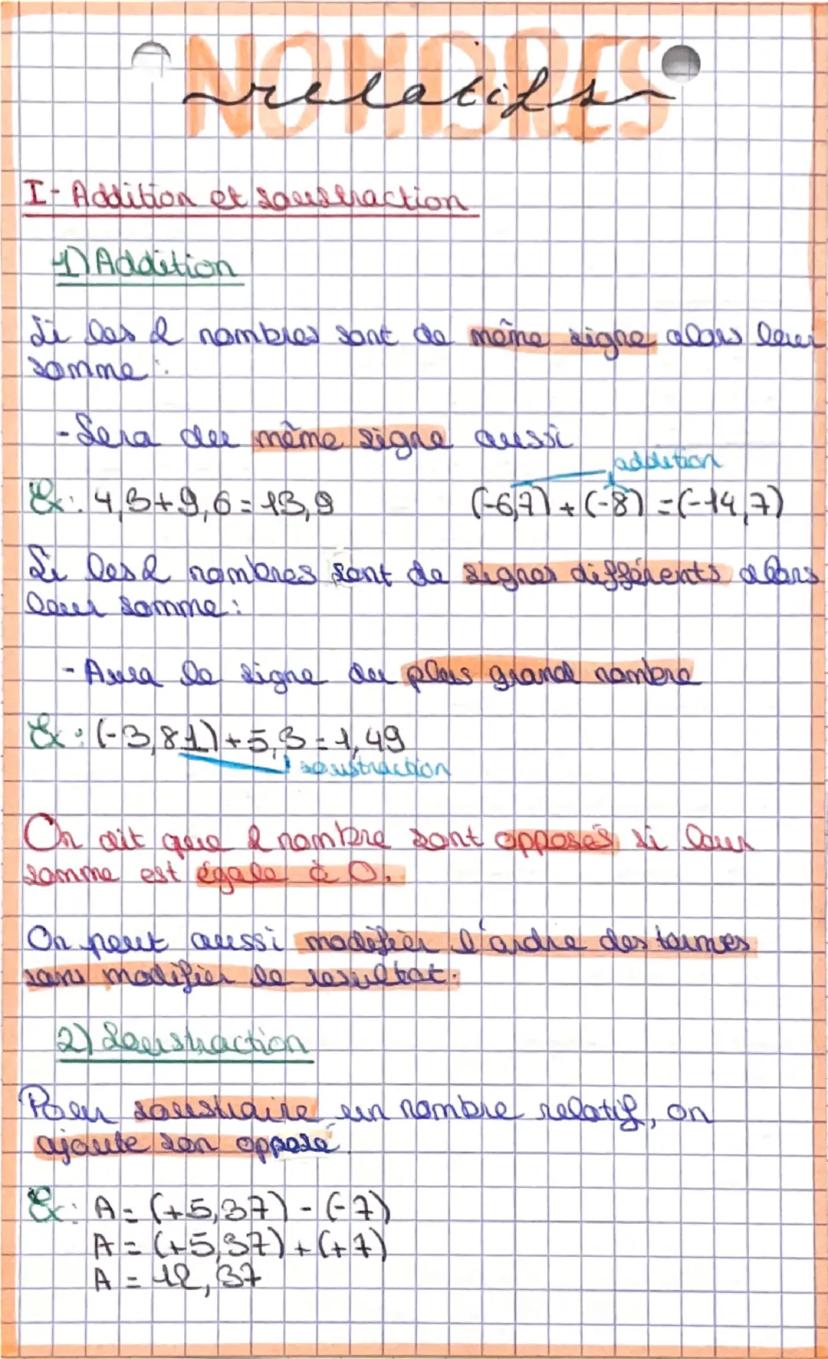 NOMBRES
relatifs
I- Addition et soustraction
1) Addition
Si les 2 nombres sont de même signe alors leur
somme :
- Sera du même signe aussi
addition
Ex: 4,3+9,6=13,9 (-6,7)+(-8)=(-14,7)
Si les 2 nombres sont de signes différents alors
leur somme:
- Aura le signe du plus grand nombre
Ex: (-3,81)+5,3=1,49
soustraction
On dit que 2 nombre sont opposés si leur
somme est égale à 0.
On peut aussi modifier l'ordre des termes
sans modifier le resultat.
2) Soustraction
Pour soustraire un nombre relatif, on
ajoute son opposé.
Ex: A = (+5,37) - (-7)
A = (+5,37) + (+7)
A = 12,37